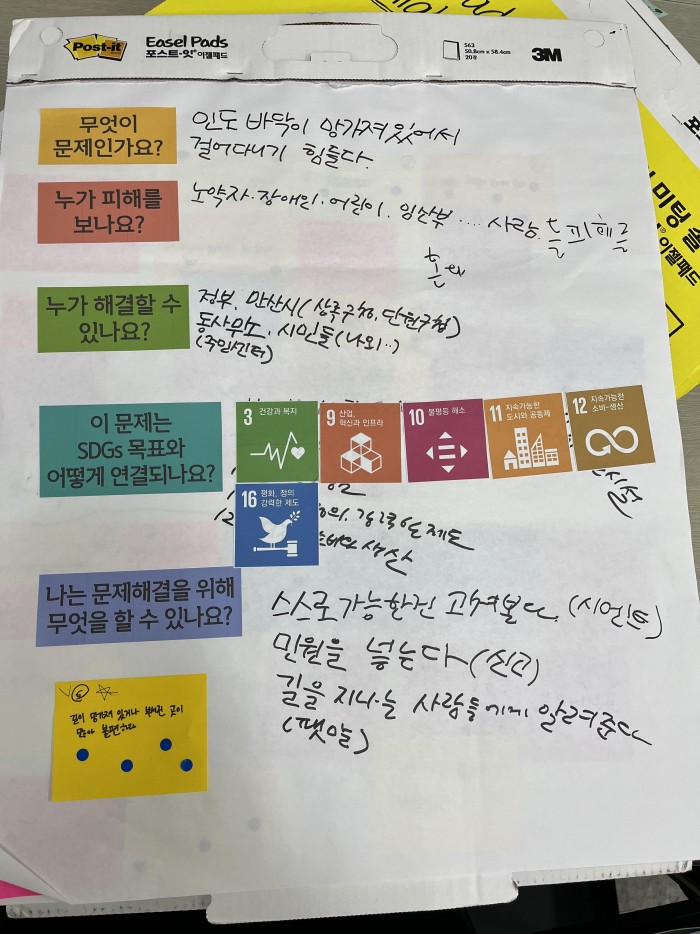 Post-it
Easel Pads
포스트-잇 이젤패드
563
50.8cm x 58.4cm
20매
3M
무엇이
문제인가요?
인도 바닥이 망가져있어서
걸어다니기 힘들다.
누가 피해를
보나요?
노약자·장애인·어린이, 임산부 .... 사람들
누가 해결할 수
있나요?
정부, 안산시(상록구청, 단원구청)
동사무소, 시민들(나외..)
(주민센터)
이 문제는
SDGs 목표와
어떻게 연결되나요?
3 건강과 복지
9 산업,
혁신과 인프라
10 불평등 해소
11 지속가능한
도시와 공동체
12 지속가능한
소비·생산
16 평화, 정의
강력한 제도
제도
생산
나는 문제해결을 위해
무엇을 할 수 있나요?
스스로 가능한건 고쳐본다. (시멘트)
민원을 넣는다 (신고)
길을 지나는 사람들에게 알려준다
(팻말)
길이 망가져 있거나 곳이
불편하다
미팅
이젤패드